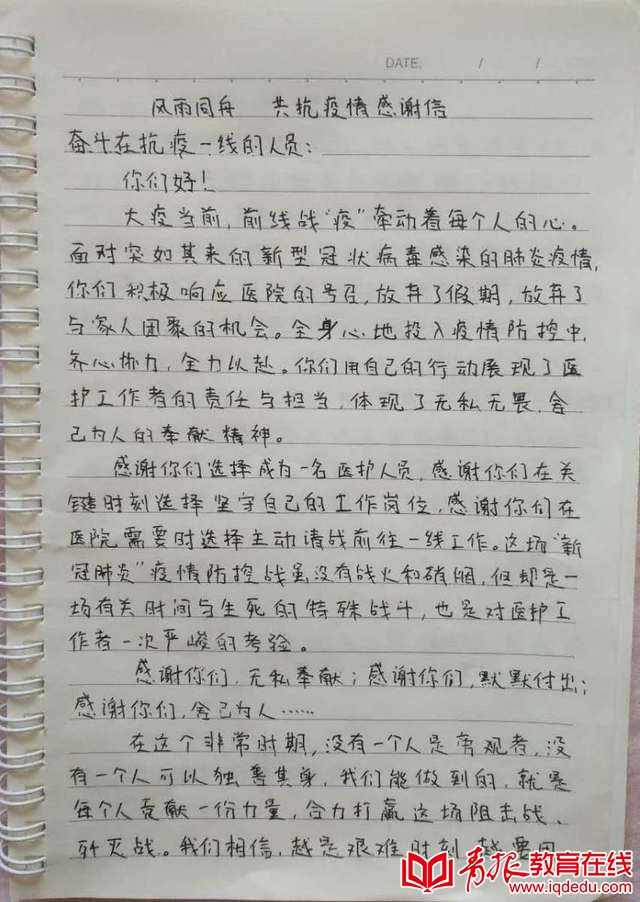 DATE. / /
风雨同舟 共抗疫情感谢信
奋斗在抗疫一线的人员：
你们好！
大疫当前，前线战“疫”牵动着每个人的心。
面对突如其来的新型冠状病毒感染的肺炎疫情，
你们积极响应医院的号召，放弃了假期，放弃了
与家人团聚的机会。全身心地投入疫情防控中，
齐心协力，全力以赴。你们用自己的行动展现了医
护工作者的责任与担当，体现了无私无畏，舍
己为人的奉献精神。
感谢你们选择成为一名医护人员，感谢你们在关
键时刻选择坚守自己的工作岗位，感谢你们在
医院需要时选择主动请战前往一线工作。这场“新
冠肺炎”疫情防控战虽没有战火和硝烟，但却是一
场有关时间与生死的特殊战斗，也是对医护工
作者一次严峻的考验。
感谢你们，无私奉献；感谢你们，默默付出；
感谢你们，舍己为人……
在这个非常时期，没有一个人是旁观者，没
有一个人可以独善其身，我们能做到的，就是
每个人贡献一份力量，合力打赢这场阻击战、
歼灭战。我们相信，越是艰难时刻 越要
青报教育在线
www.iqdedu.com